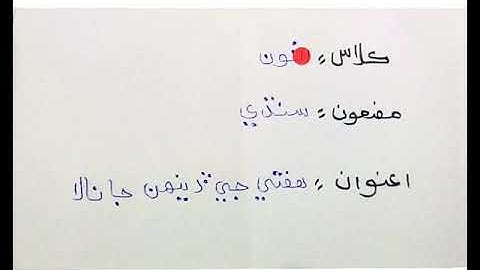 ڪلاس: ٽون
مضمون: سنڌي
اعنوان: هفتي جي ڏينهن جا نالا